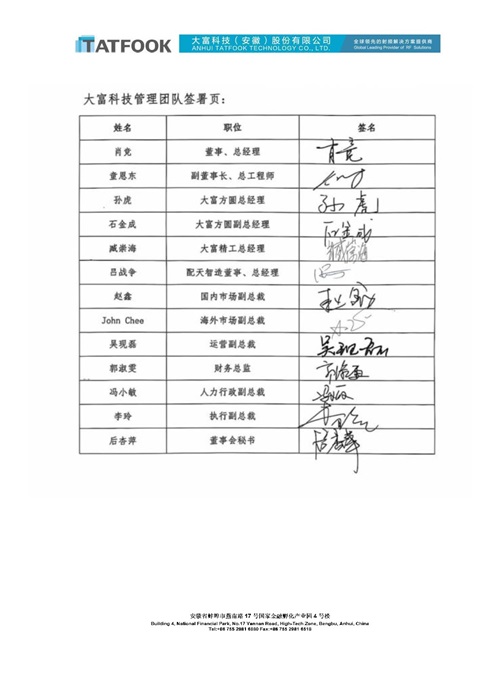 TATFOOK
大富科技（安徽）股份有限公司
ANHUI TATFOOK TECHNOLOGY CO., LTD.
全球领先的射频解决方案提供商
Global Leading Provider of RF Solutions
大富科技管理团队签署页：
姓名 职位 签名
肖竞 董事、总经理 肖竞
童恩东 副董事长、总工程师
孙虎 大富方圆总经理 孙虎
石金成 大富方圆副总经理 石金成
臧崇海 大富精工总经理 臧崇海
吕战争 配天智造董事、总经理
赵鑫 国内市场副总裁 赵鑫
John Chee 海外市场副总裁
吴现磊 运营副总裁 吴现磊
郭淑雯 财务总监 郭淑雯
冯小敏 人力行政副总裁
李玲 执行副总裁
后杏萍 董事会秘书
安徽省蚌埠市燕南路 17 号国家金融孵化产业园 4 号楼
Building 4, National Financial Park, No.17 Yannan Road, High-Tech Zone, Bengbu, Anhui, China
Tel:+86 755 2981 6880 Fax:+86 755 2981 6810